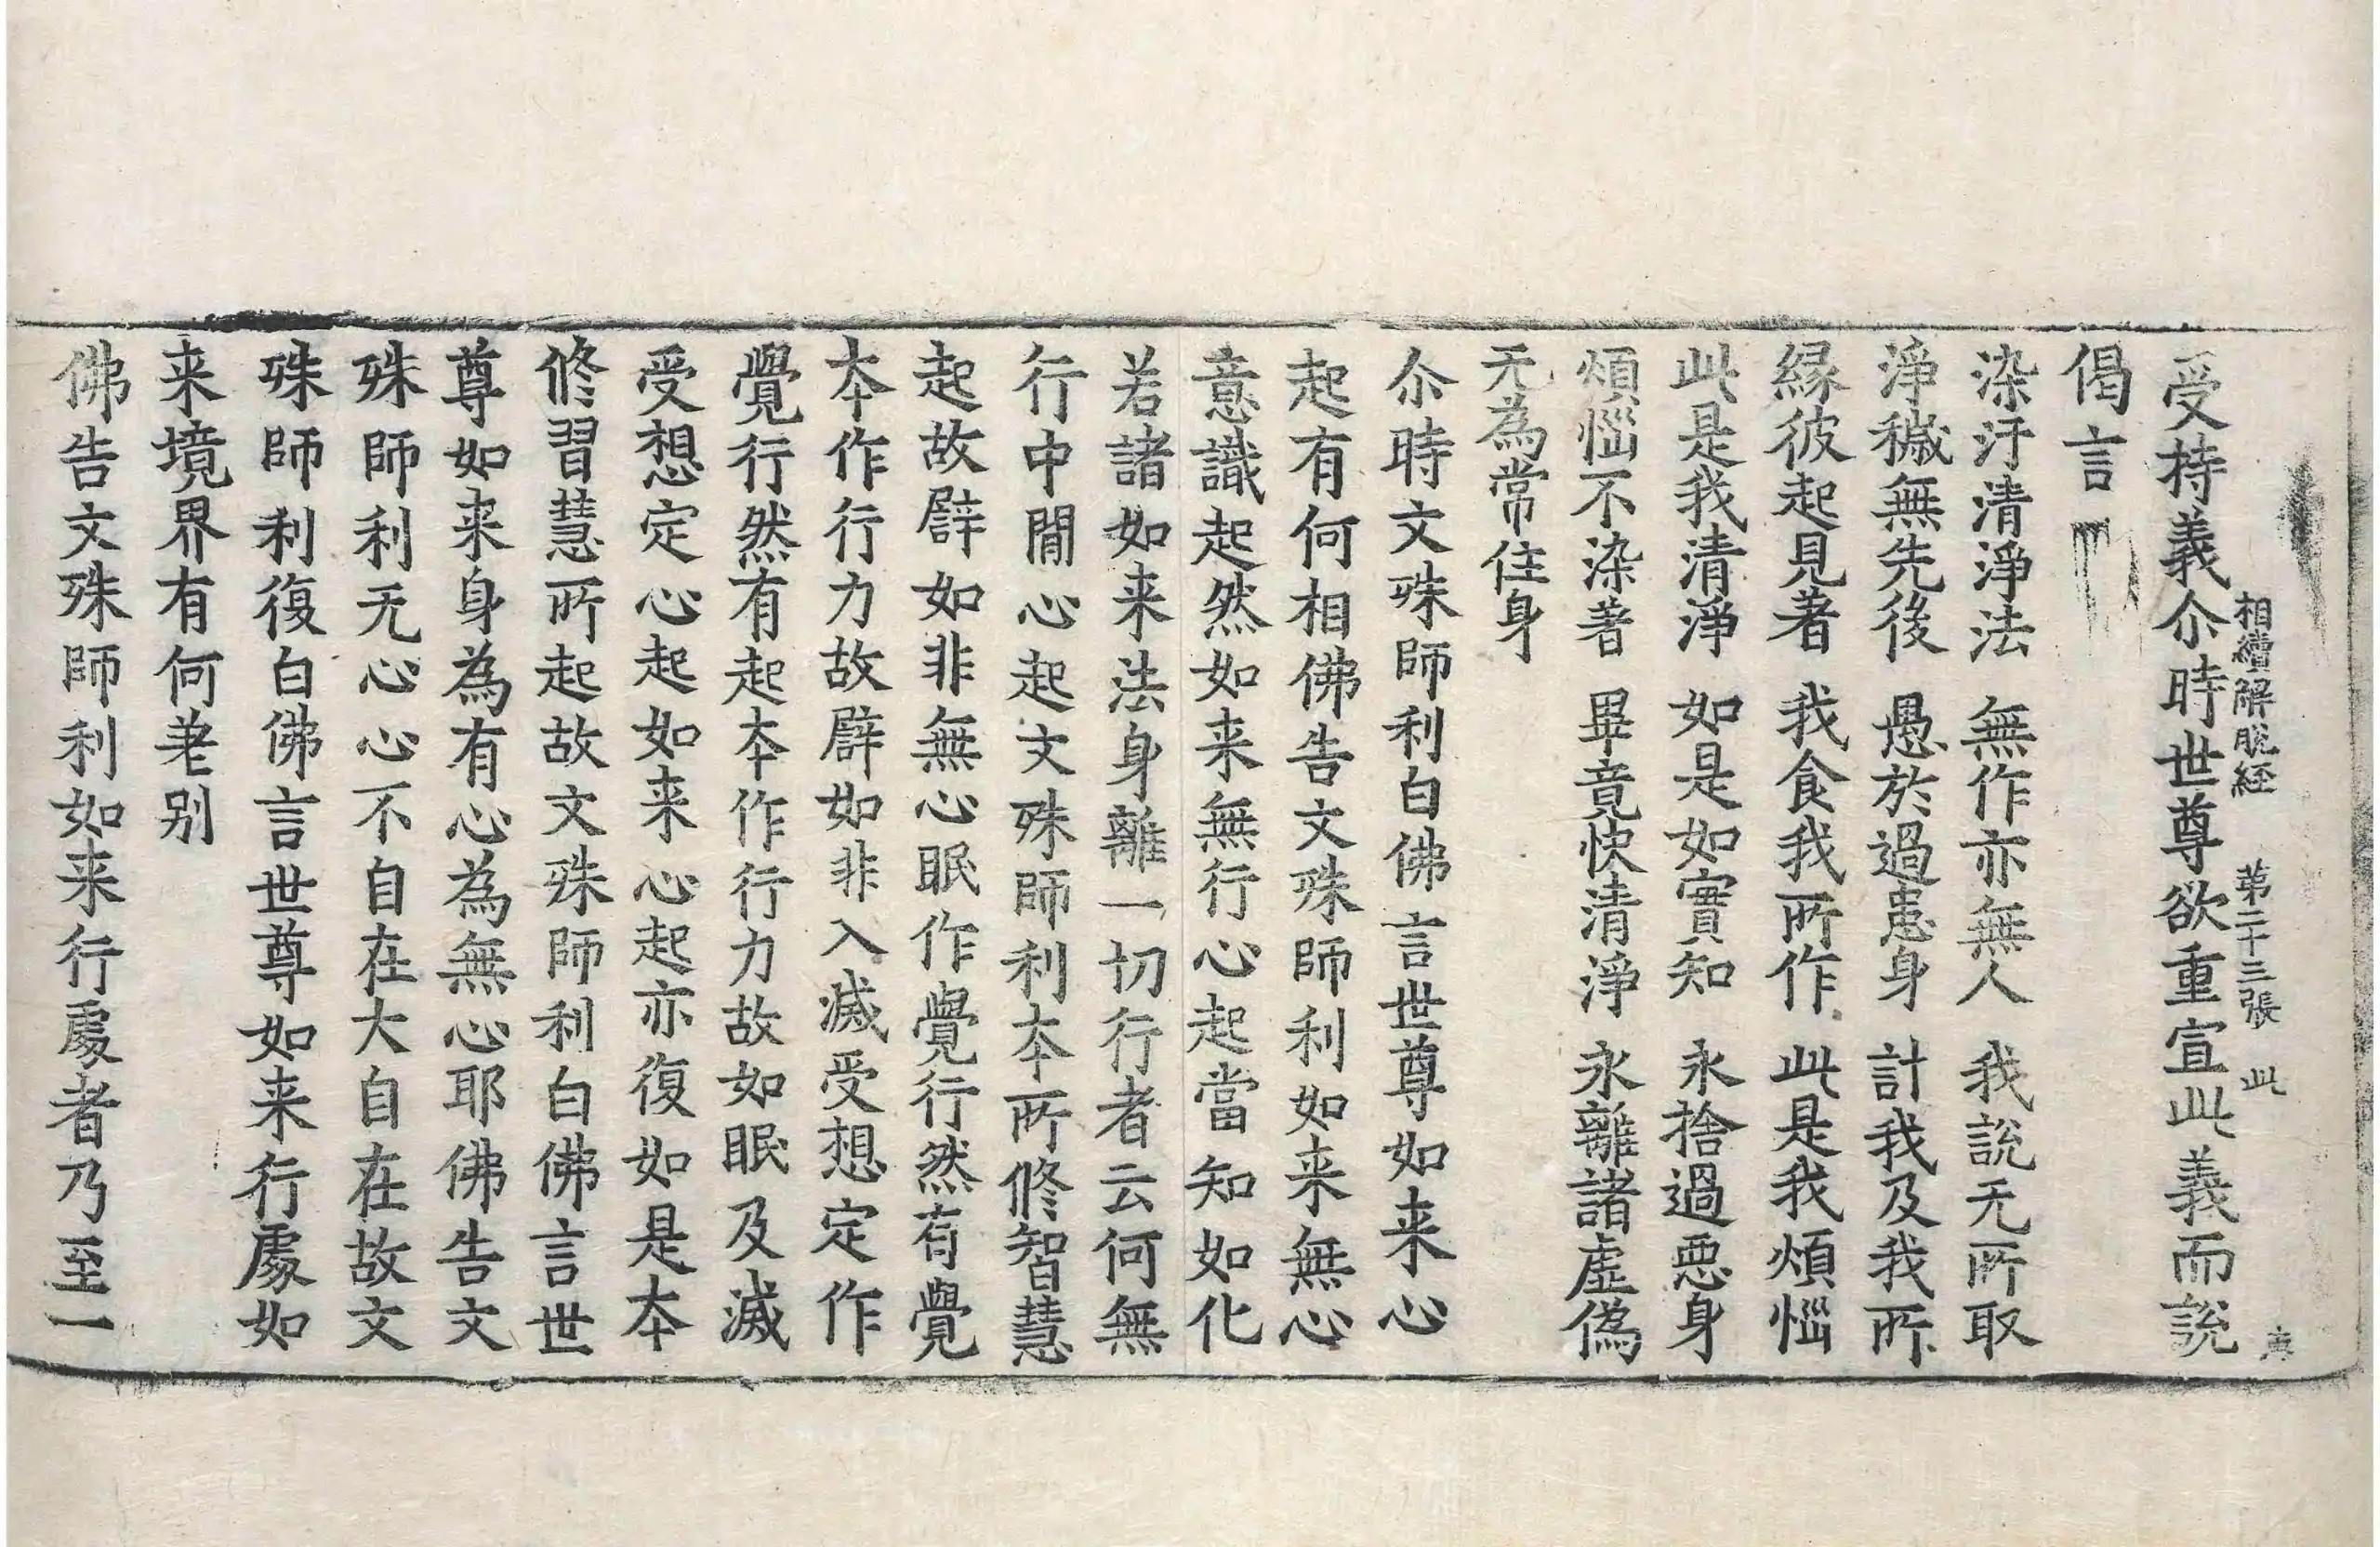 相續解脫経　第二十三張　此
受持義尒時世尊欲重宣此義而說
偈言
染汙清淨法　無作亦無人　我說无所取
淨穢無先後　愚於過患身　計我及我所
緣彼起見著　我食我所作　此是我煩惱
此是我清淨　如是如實知　永捨過惡身
煩惱不染著　畢竟快清淨　永離諸虛偽
无為常住身
尒時文殊師利白佛言世尊如来心
起有何相佛告文殊師利如来無心
意識起然如来無行心起當知如化
若諸如来法身離一切行者云何無
行中間心起文殊師利本所修智慧
起故辟如非無心眠作覺行然有覺
本作行力故辟如非入滅受想定作
覺行然有起本作行力故如眠及滅
受想定心起如来心起亦復如是本
修習慧所起故文殊師利白佛言世
尊如来身為有心為無心耶佛告文
殊師利无心心不自在大自在故文
殊師利復白佛言世尊如来行處如
来境界有何差别
佛告文殊師利如来行處者乃至一